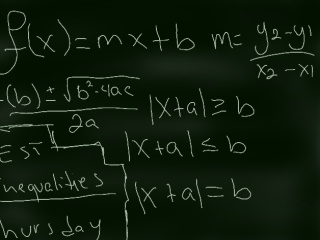 f(x) = mx + b m = y2 - y1 / x2 - x1
-(b) ± √b²-4ac / 2a
|x+a| ≥ b
|x+a| ≤ b
|x+a| = b
EST
Inequalities
hursday